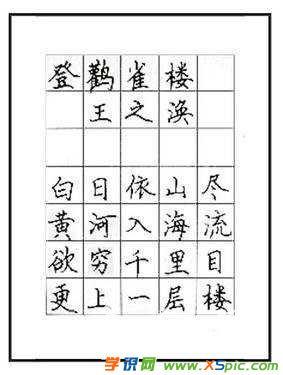 登鹳雀楼
王之涣
白日依山尽
黄河入海流
欲穷千里目
更上一层楼
学识网 www.XSpic.com